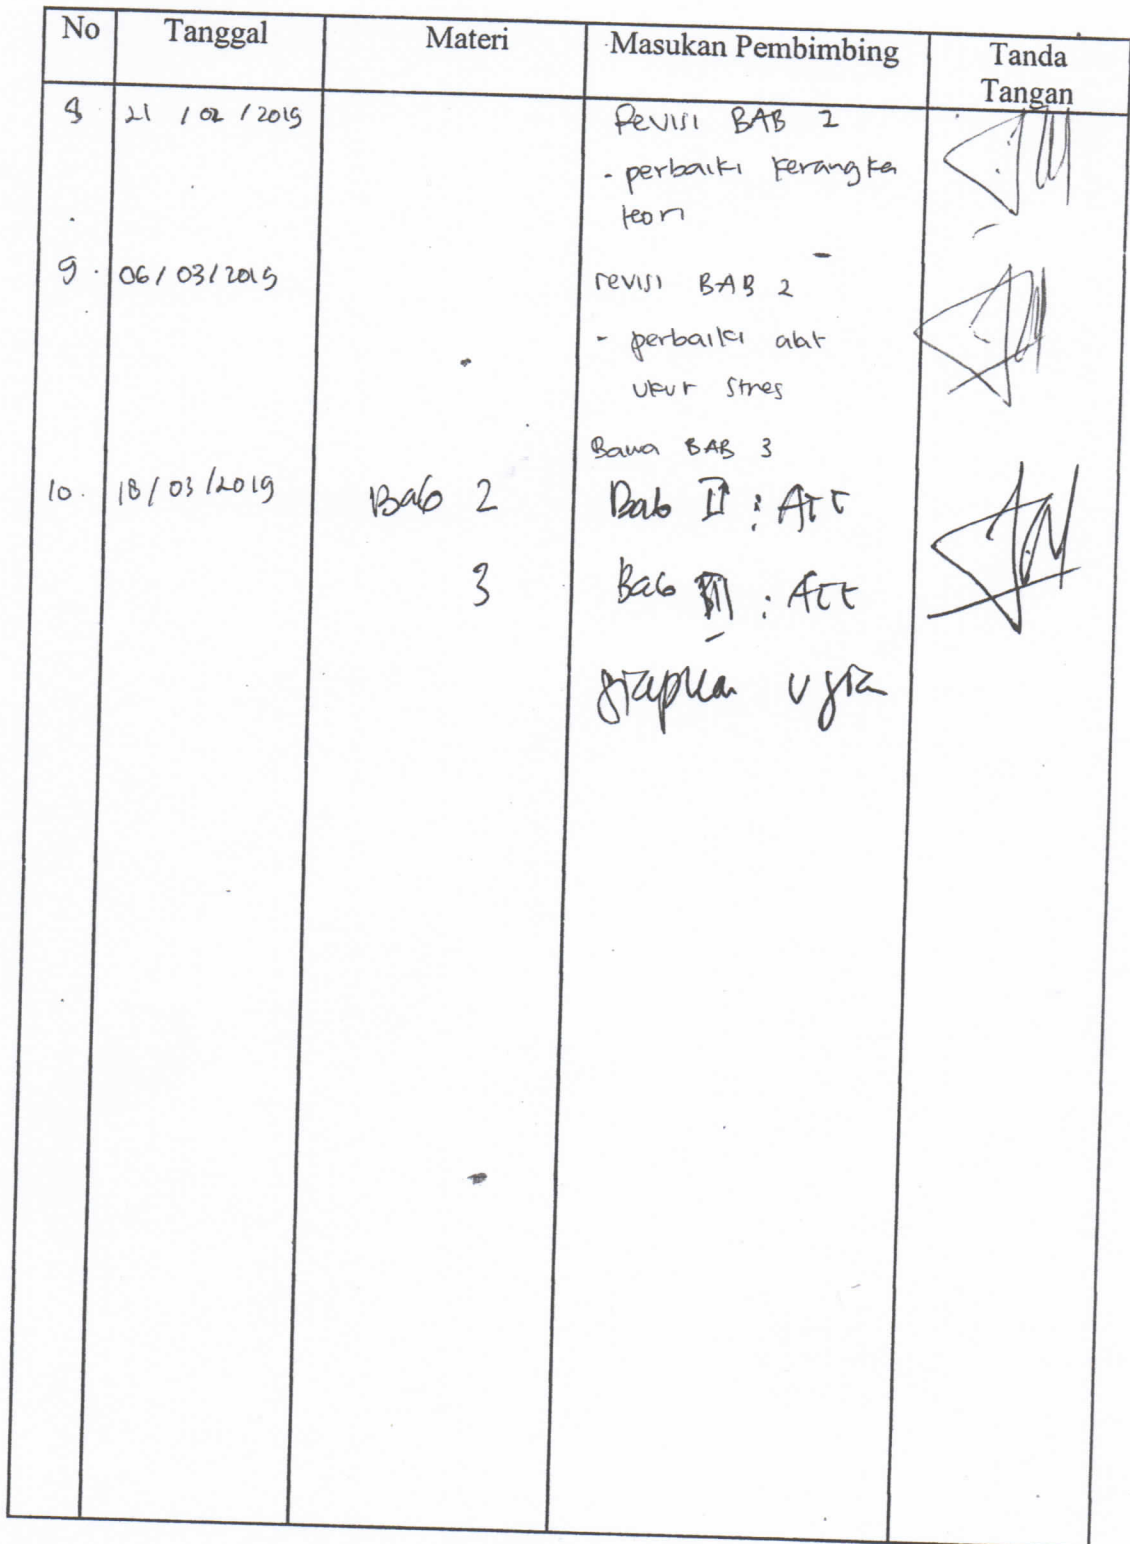 No Tanggal Materi Masukan Pembimbing Tanda Tangan
8 21 / 02 / 2019 Revisi BAB 2
- perbaiki kerangka
teori
9. 06 / 03 / 2019 revisi BAB 2
- perbaiki alat
ukur stres
Bawa BAB 3
10. 18 / 03 / 2019 Bab 2 Bab II : Acc
3 Bab III : Acc
siapkan ujian